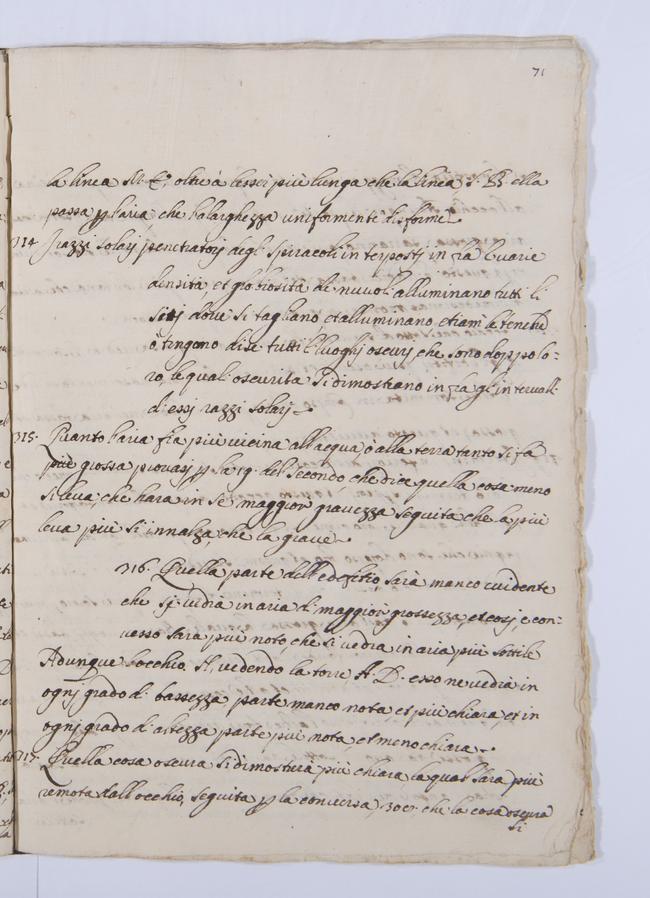 71
la linea M. E, oltre à lesser più lunga che la linea, S. B. ella
passa p l'aria, che ha larghezza uniformente difforme.
314 J razzi solarj penetratorj degli spiracoli interpostj infra le uarie
densità, et globiosità de nuuoli alluminano tutti li
sitij doue si tagliano, et alluminano etiam le tenebre
ò, tingono di se tutti li luoghj oscurj, che sono doppo lo-
ro, le quali oscurità si dimostrano infra gl'interualli
di essj razzi solarj.
315. Quanto l'aria fia più uicina all'acqua, ò alla terra tanto si fa
più grossa prouasj p la 19. del secondo, che dice quella cosa meno
si leua, che harà in se maggior grauezza seguita che la più
leue più si innalza, che la graue.
316. Quella parte dell'edefitio, sarà manco euidente
che si uedrà in aria di maggior grossezza, et cosj, e con-
uerso sarà più noto, che si uedrà in aria più sottile
Adunque l'occhio. N, uedendo la torre A. D. esso ne uedrà in
ognj grado di bassezza parte manco nota, et più chiara, et in
ognj grado di altezza parte più nota et meno chiara.
317. Quella cosa oscura si dimostrerà più chiara, la qual sarà più
remota dall'occhio, seguita p la conuersa, che la cosa oscura
si